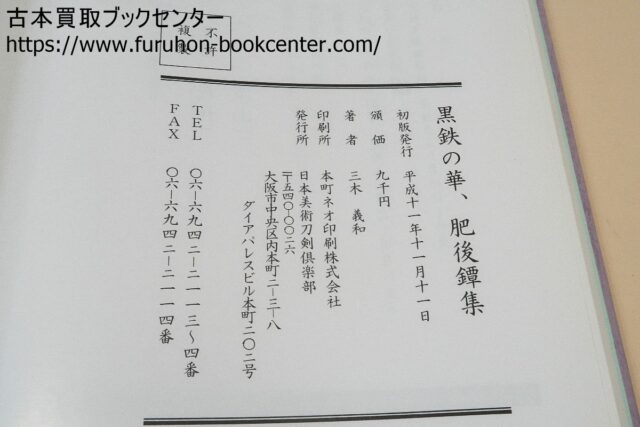 古本買取ブックセンター
https://www.furuhon-bookcenter.com/
不許
複製
黒鉄の華、肥後鐔集
初版発行 平成十一年十一月十一日
頒価 九千円
著者 三木義和
印刷所 本町ネオ印刷株式会社
発行所 日本美術刀剣倶楽部
〒五四〇-〇〇二六
大阪市中央区内本町二-三-八
ダイアパレスビル本町二〇二号
TEL 〇六-六九四二-二一一三~四番
FAX 〇六-六九四二-二一一四番